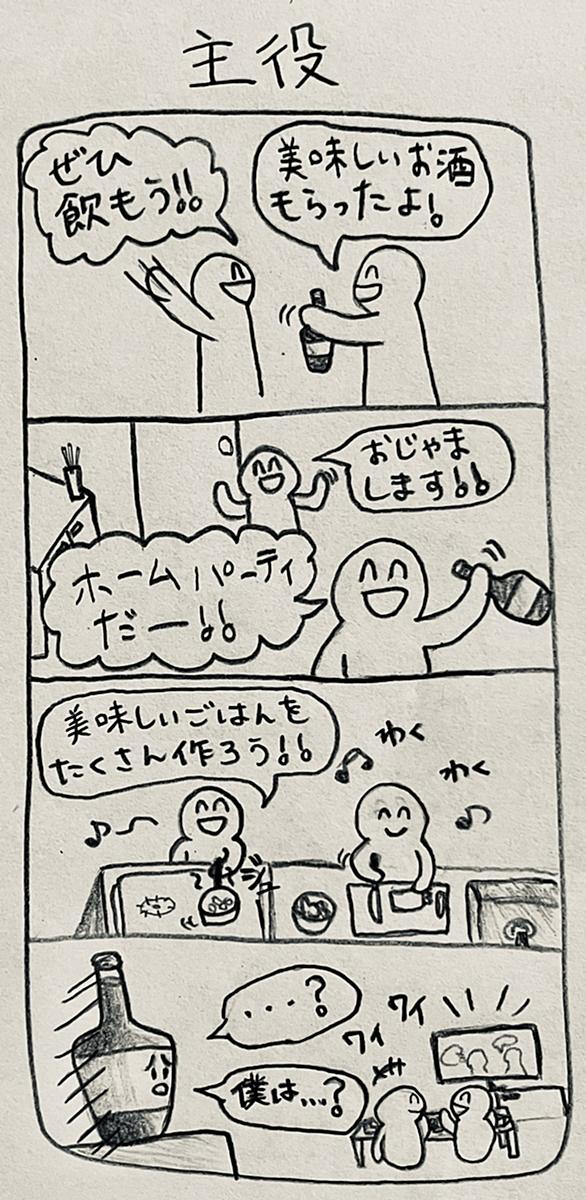 主役
美味しいお酒
もらったよ!
ぜひ
飲もう!!
おじゃま
します!!
ホームパーティ
だー!!
美味しいごはんを
たくさん作ろう!!
わく
わく
ジュ
...?
僕は...?
ワイ
ワイ